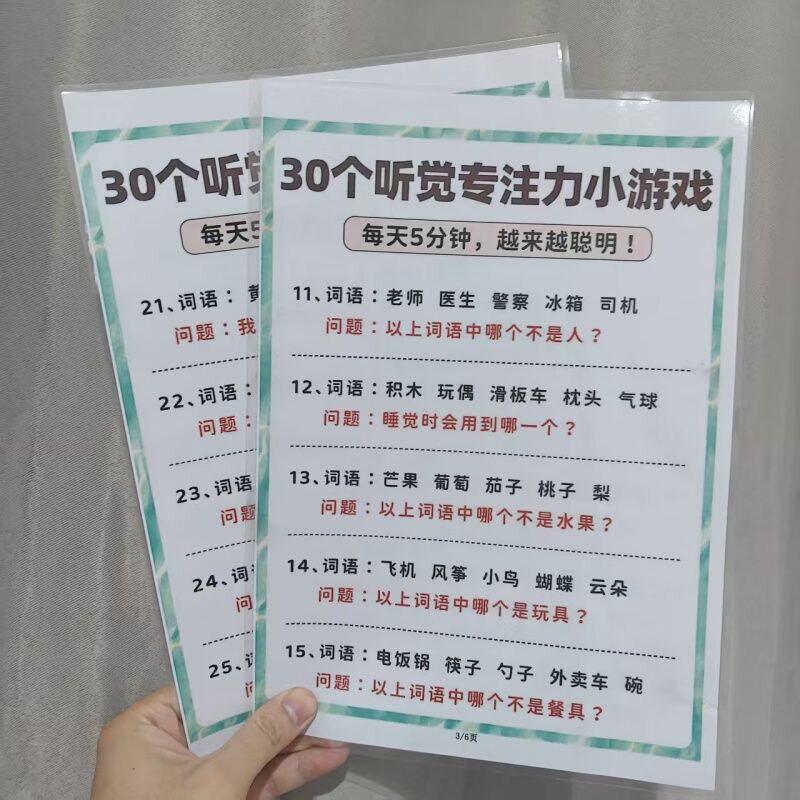 30个听觉专注力小游戏
每天5分钟，越来越聪明！
11、词语：老师 医生 警察 冰箱 司机
问题：以上词语中哪个不是人？
12、词语：积木 玩偶 滑板车 枕头 气球
问题：睡觉时会用到哪一个？
13、词语：芒果 葡萄 茄子 桃子 梨
问题：以上词语中哪个不是水果？
14、词语：飞机 风筝 小鸟 蝴蝶 云朵
问题：以上词语中哪个是玩具？
15、词语：电饭锅 筷子 勺子 外卖车 碗
问题：以上词语中哪个不是餐具？
3/6页
30个听
每天5
21、词语：
问题：我
22、词语：
问题：
23、词语
问题
24、词
问
25、